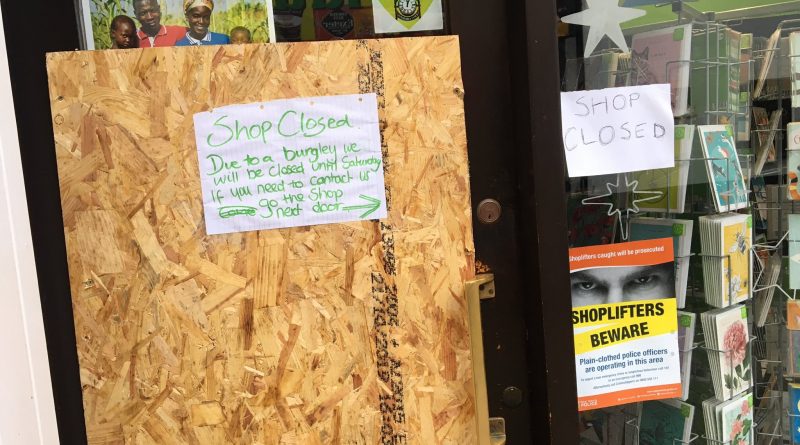 Shop Closed
Due to a burgley we
will be closed until Saturday
If you need to contact us
go the shop
next door
SHOP
CLOSED
Shoplifters caught will be prosecuted
SHOPLIFTERS
BEWARE
Plain-clothed police officers
are operating in this area
POLICE